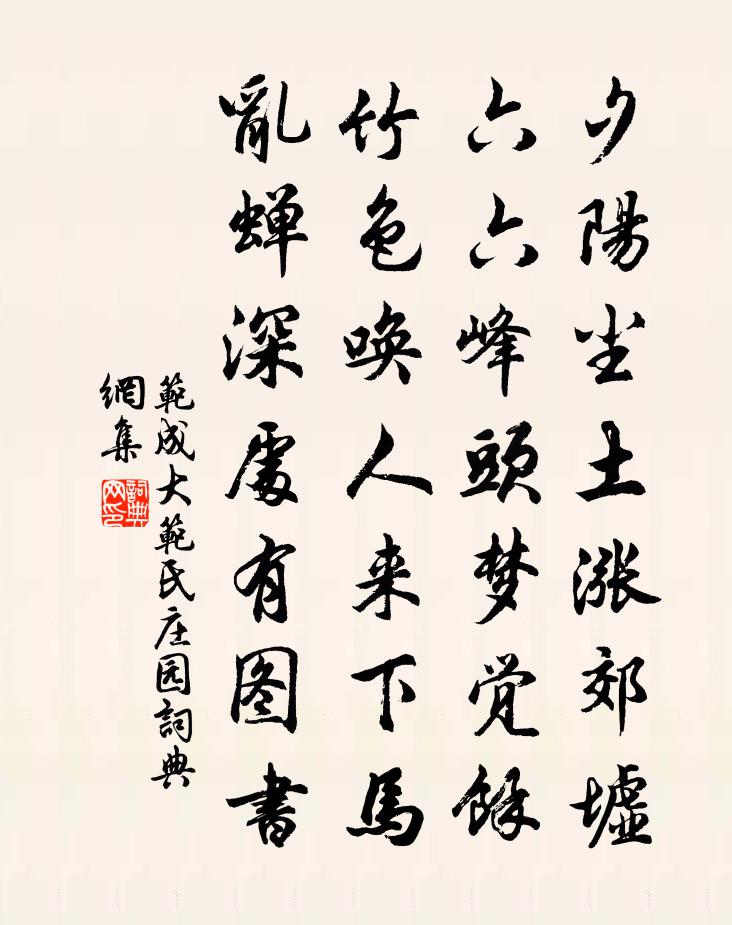 夕陽尘土漲郊墟
六六峰頭梦觉餘
竹色唤人来下馬
亂蝉深處有图書
範成大範氏庄园詞典
網集
詞典
网印